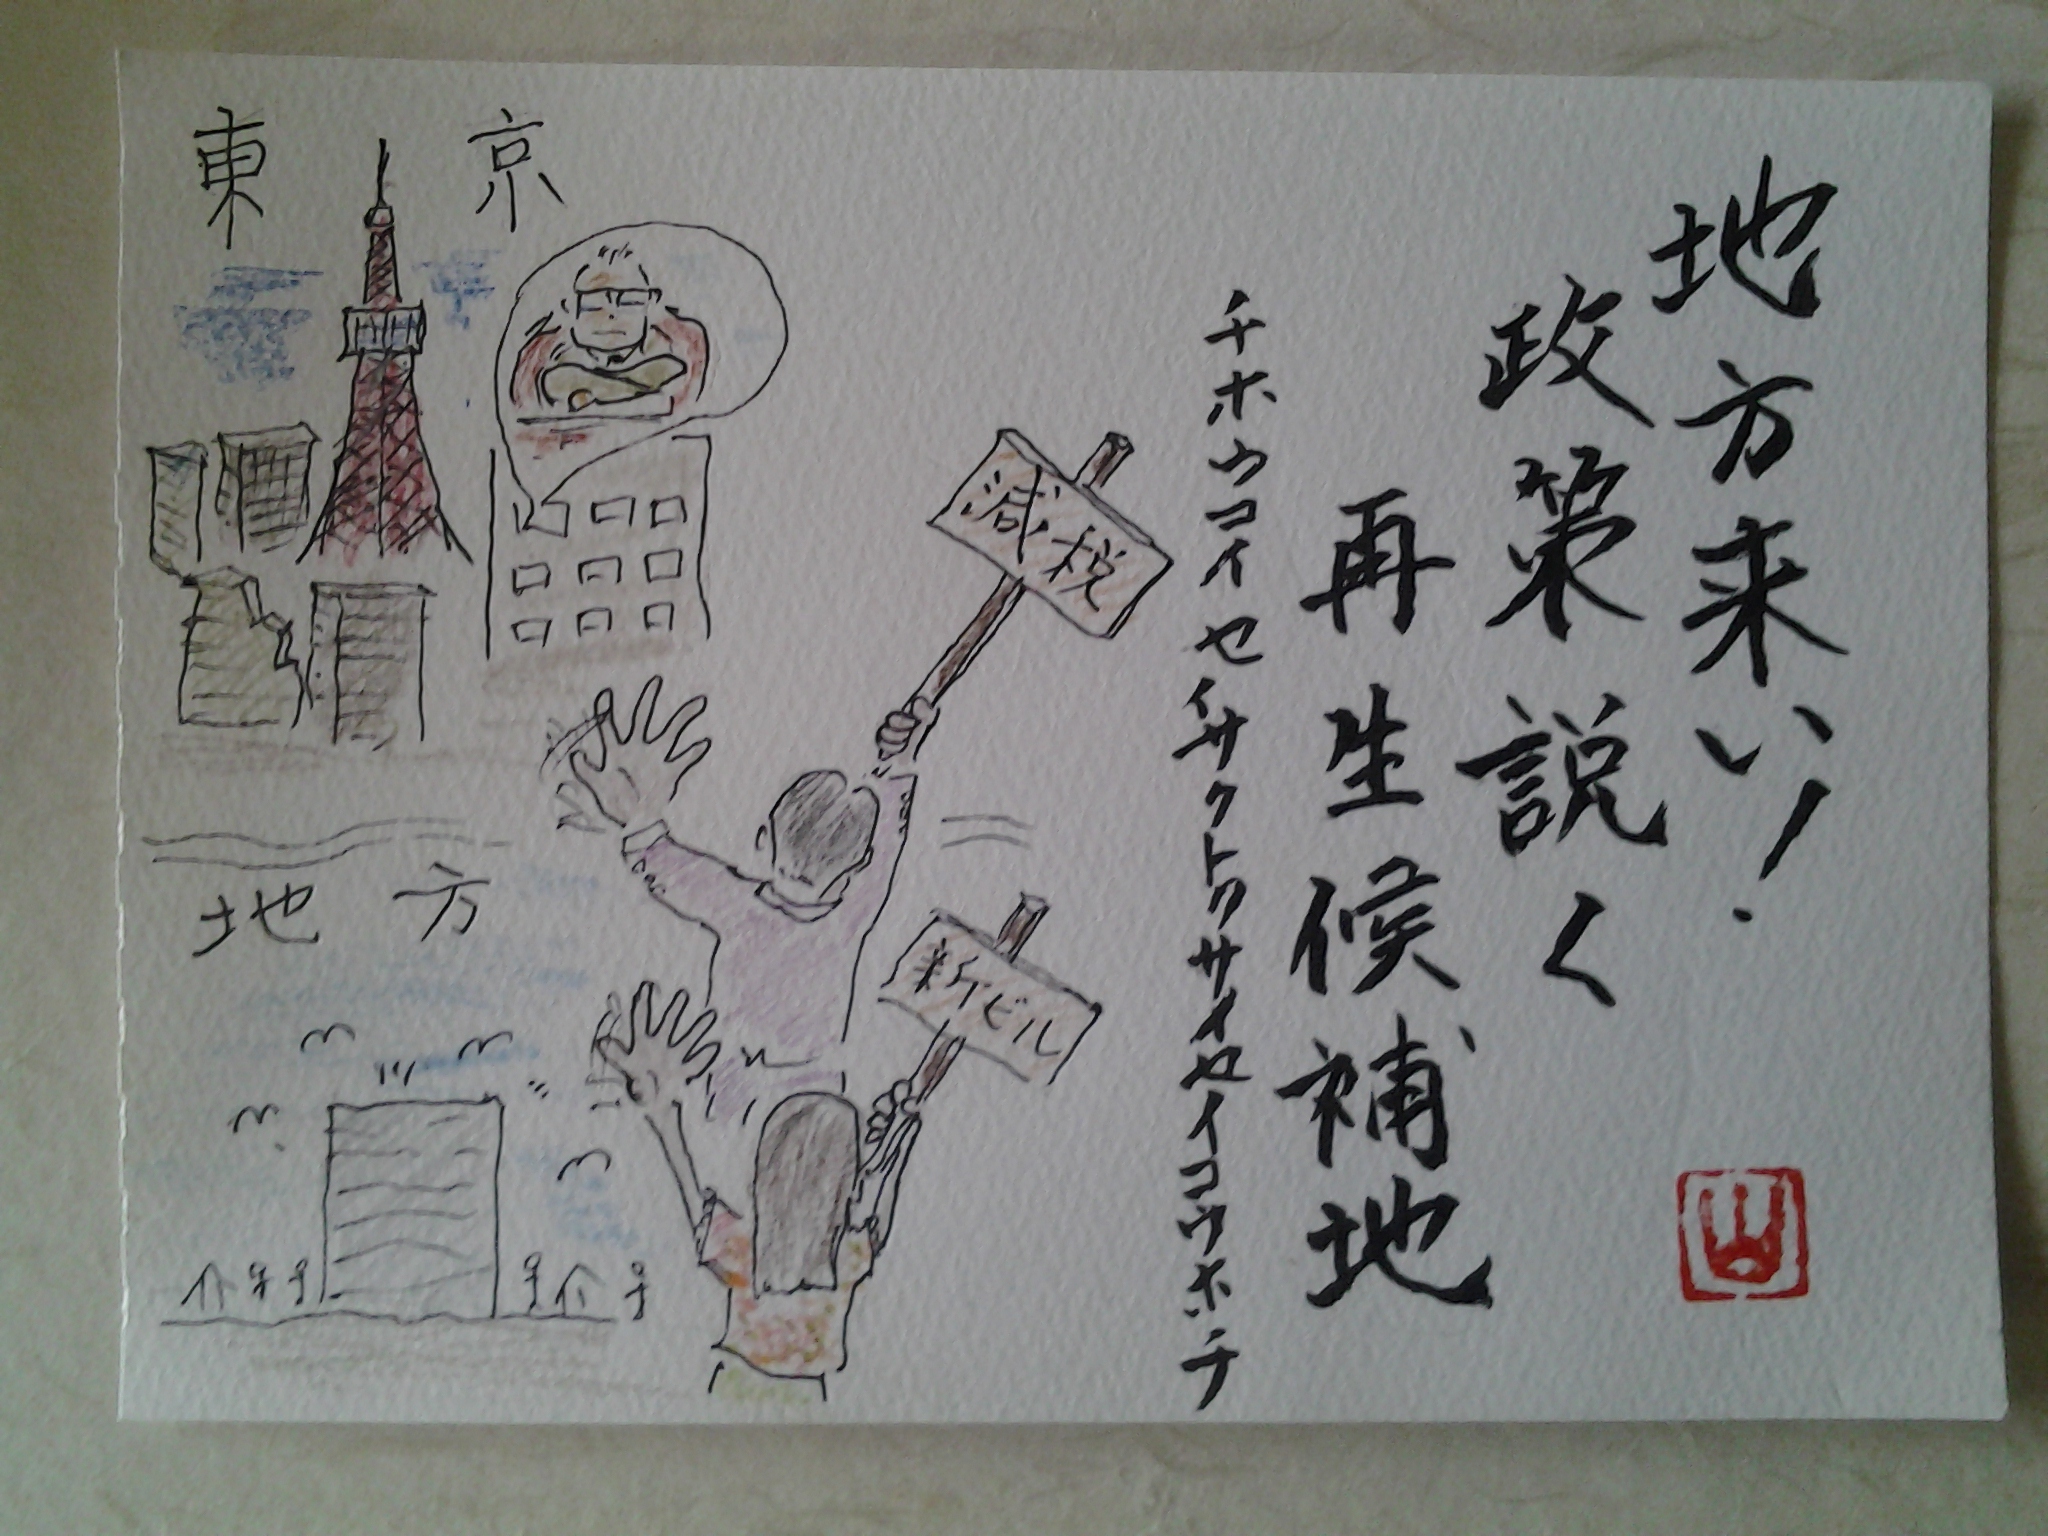 地方来い!
政策説く
再生候補地
チホウコイセイサクトクサイセイコウホチ
減税
新ビル
東京
地方